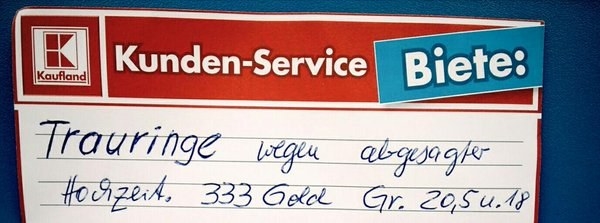 Kaufland
Kunden-Service
Biete:
Trauringe wegen abgesagter
Hochzeit. 333 Gold Gr. 20,5 u. 18